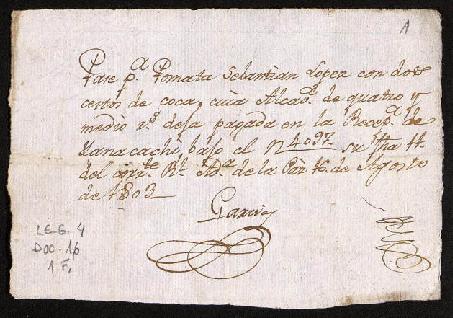 A
Pase pª Pomata Sebastian Lopez con dos
cestos de coca, cuia Alcavª. de quatro y
medio rs. deja pagada en la Recepª. de
Yanacachi bajo el N 4097 su fha 14
del corrte. Rl. Adª. de la Paz 16 de Agosto
de 1803
Garcia
LEG. 4
DOC. 16
1 F.